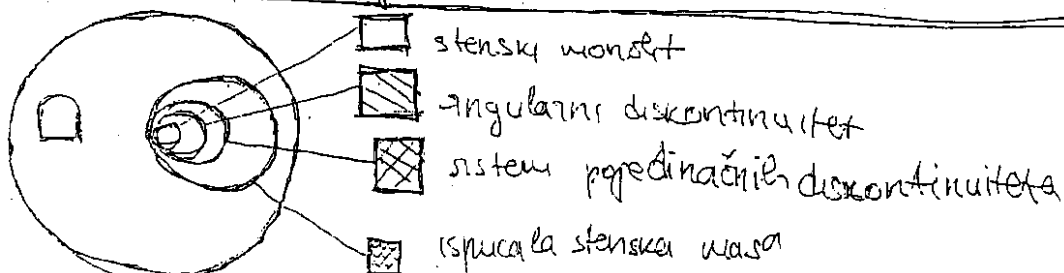 stenski monolit
singularni diskontinuitet
sistem pojedinačnih diskontinuiteta
ispucala stenska masa